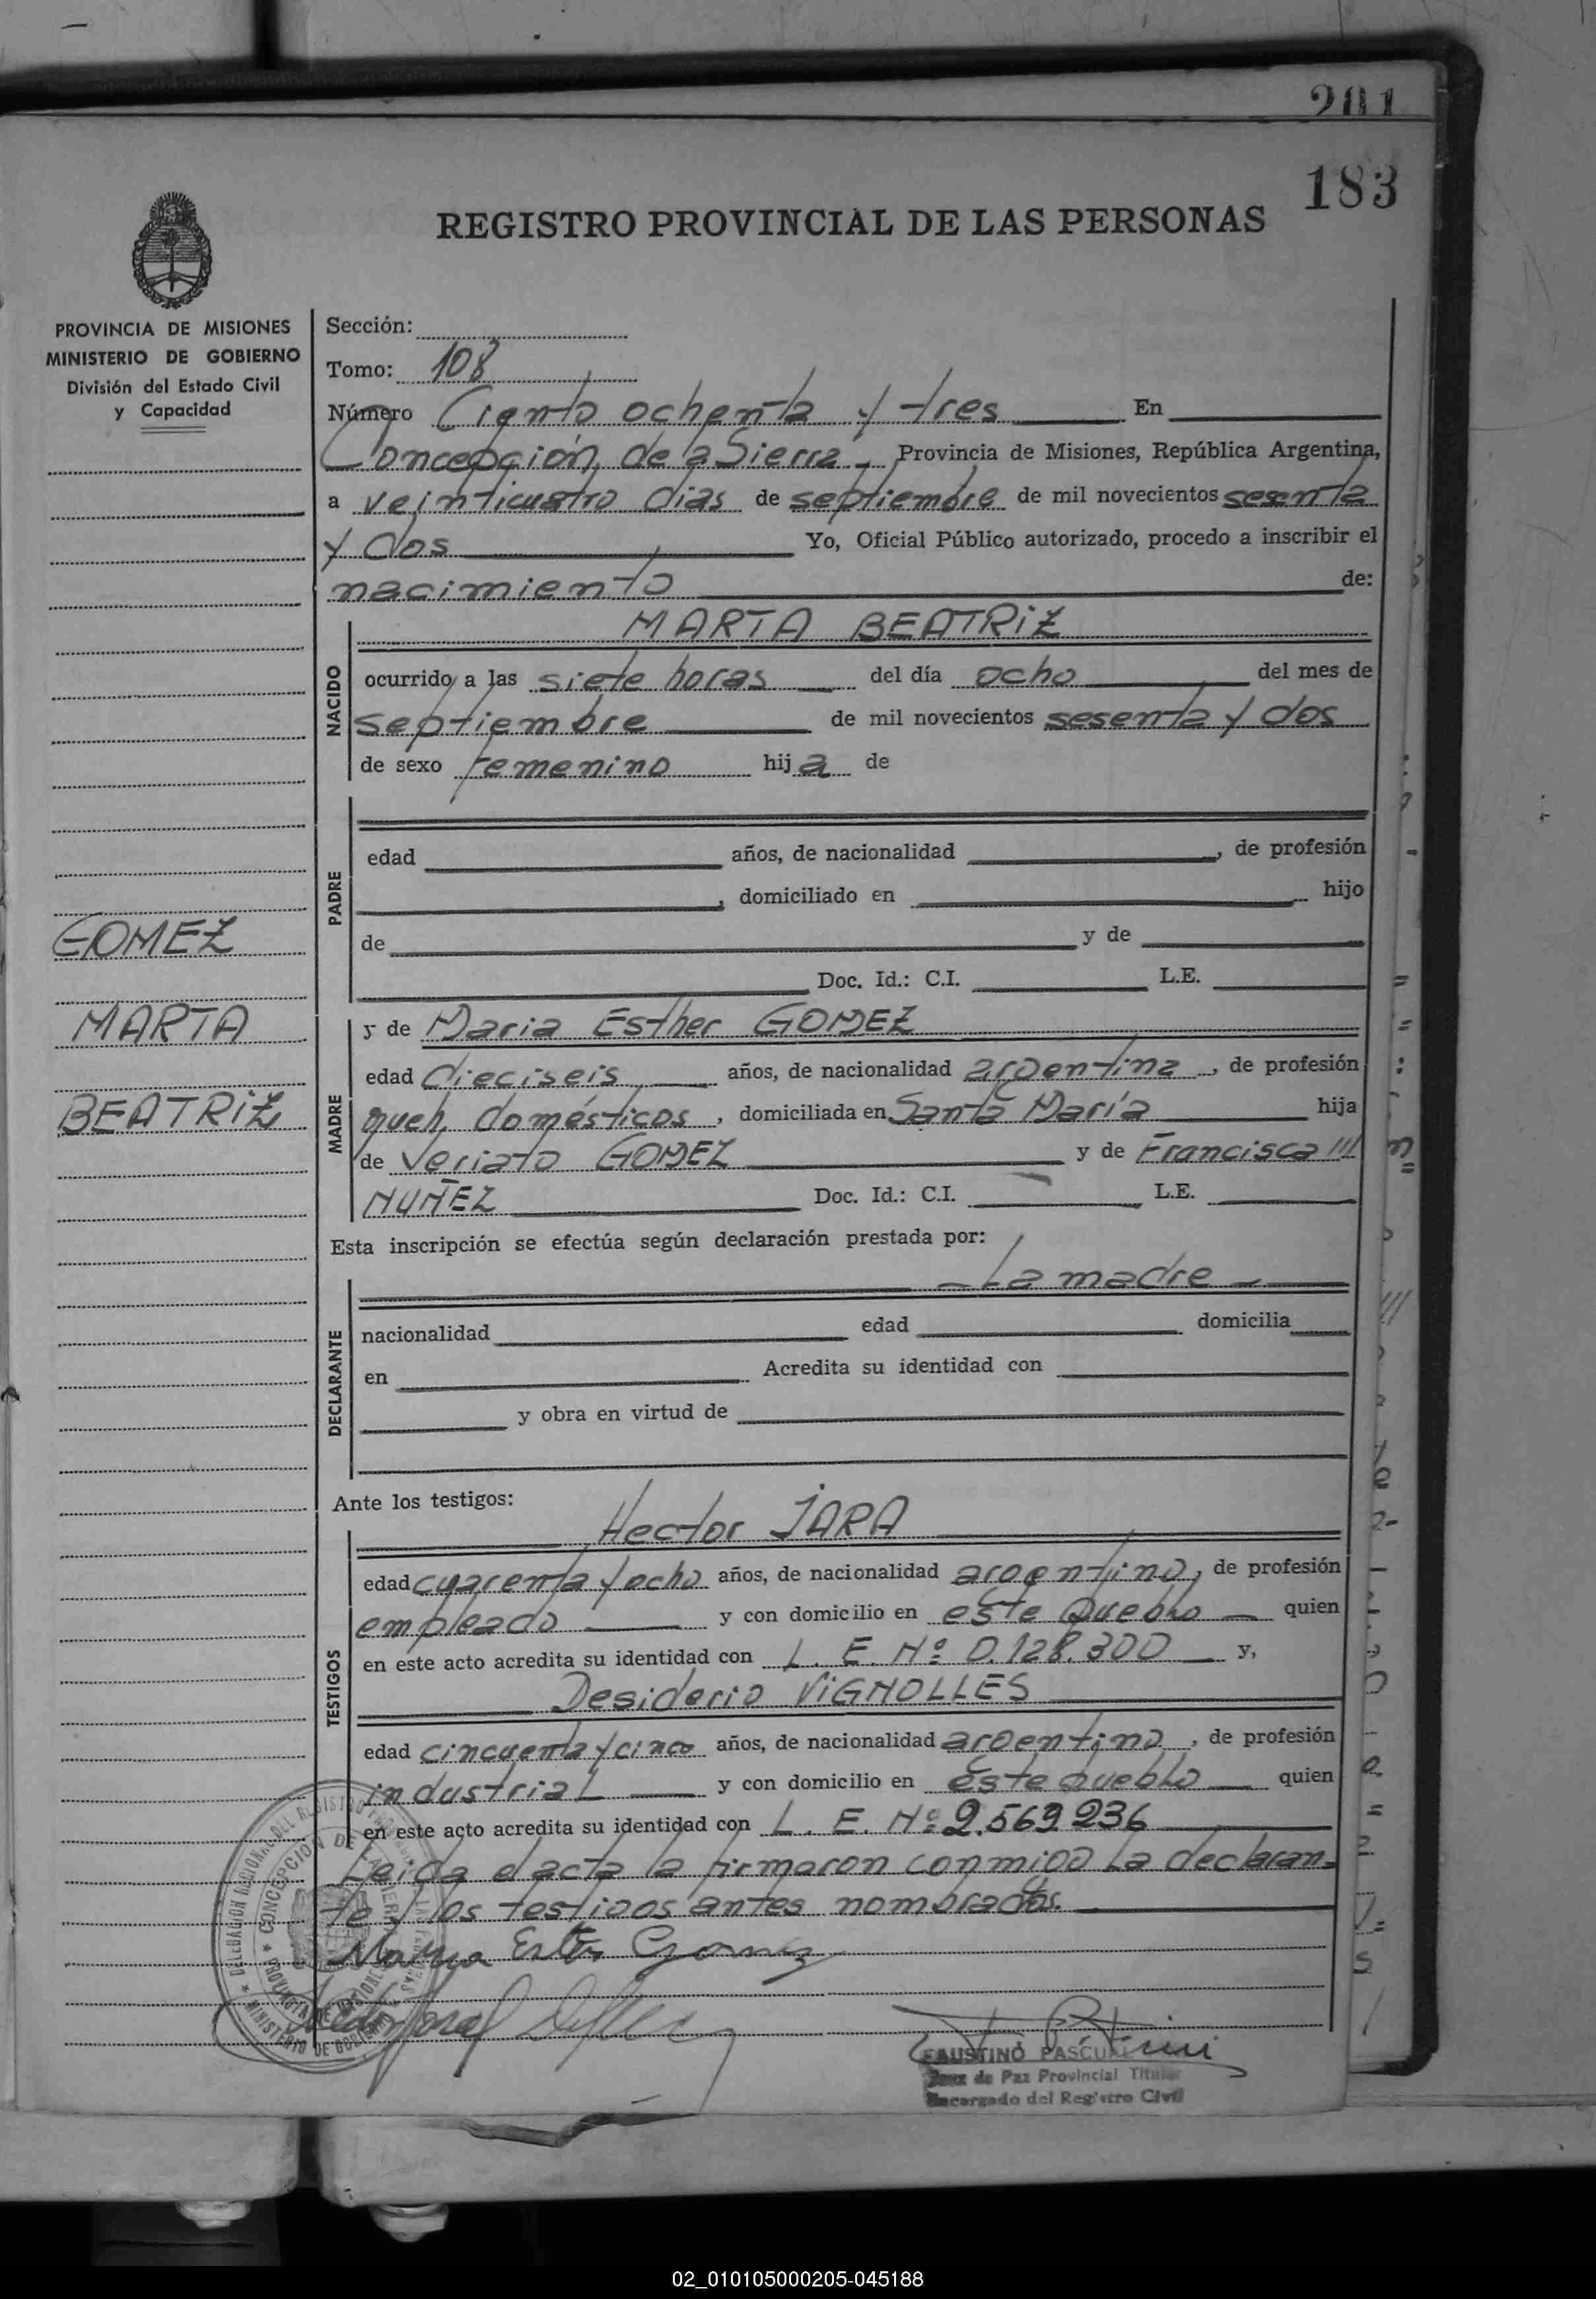 201
183
REGISTRO PROVINCIAL DE LAS PERSONAS
PROVINCIA DE MISIONES
MINISTERIO DE GOBIERNO
División del Estado Civil
y Capacidad
Sección:
Tomo: 108
Número Ciento ochenta y tres En
Concepción de la Sierra Provincia de Misiones, República Argentina,
a veinticuatro dias de septiembre de mil novecientos sesenta
y dos Yo, Oficial Público autorizado, procedo a inscribir el
nacimiento de:
NACIDO
MARTA BEATRIZ
ocurrido a las siete horas del día ocho del mes de
septiembre de mil novecientos sesenta y dos
de sexo femenino hija de
PADRE
edad años, de nacionalidad , de profesión
, domiciliado en hijo
de y de
Doc. Id.: C.I. L.E.
GOMEZ
MARTA
BEATRIZ
MADRE
y de Maria Esther GOMEZ
edad dieciseis años, de nacionalidad argentina , de profesión
queh. domésticos , domiciliada en Santa María hija
de Veriato GOMEZ y de Francisca ///
NUÑEZ Doc. Id.: C.I. L.E.
Esta inscripción se efectúa según declaración prestada por:
DECLARANTE
- La madre -
nacionalidad edad domicilia
en Acredita su identidad con
y obra en virtud de
Ante los testigos:
TESTIGOS
Hector JARA
edad cuarenta y ocho años, de nacionalidad argentino, de profesión
empleado y con domicilio en este pueblo quien
en este acto acredita su identidad con L. E. Nº 0.128.300 y,
Desiderio VIGNOLLES
edad cincuenta y cinco años, de nacionalidad argentino , de profesión
industrial y con domicilio en este pueblo quien
en este acto acredita su identidad con L. E. Nº 2.569.236
Leida el acta la firmaron conmigo la declaran-
te y los testigos antes nombrados.
Maria Ester Gomez
FAUSTINO
Juez de Paz Provincial Titular
Encargado del Registro Civil
02_010105000205-045188